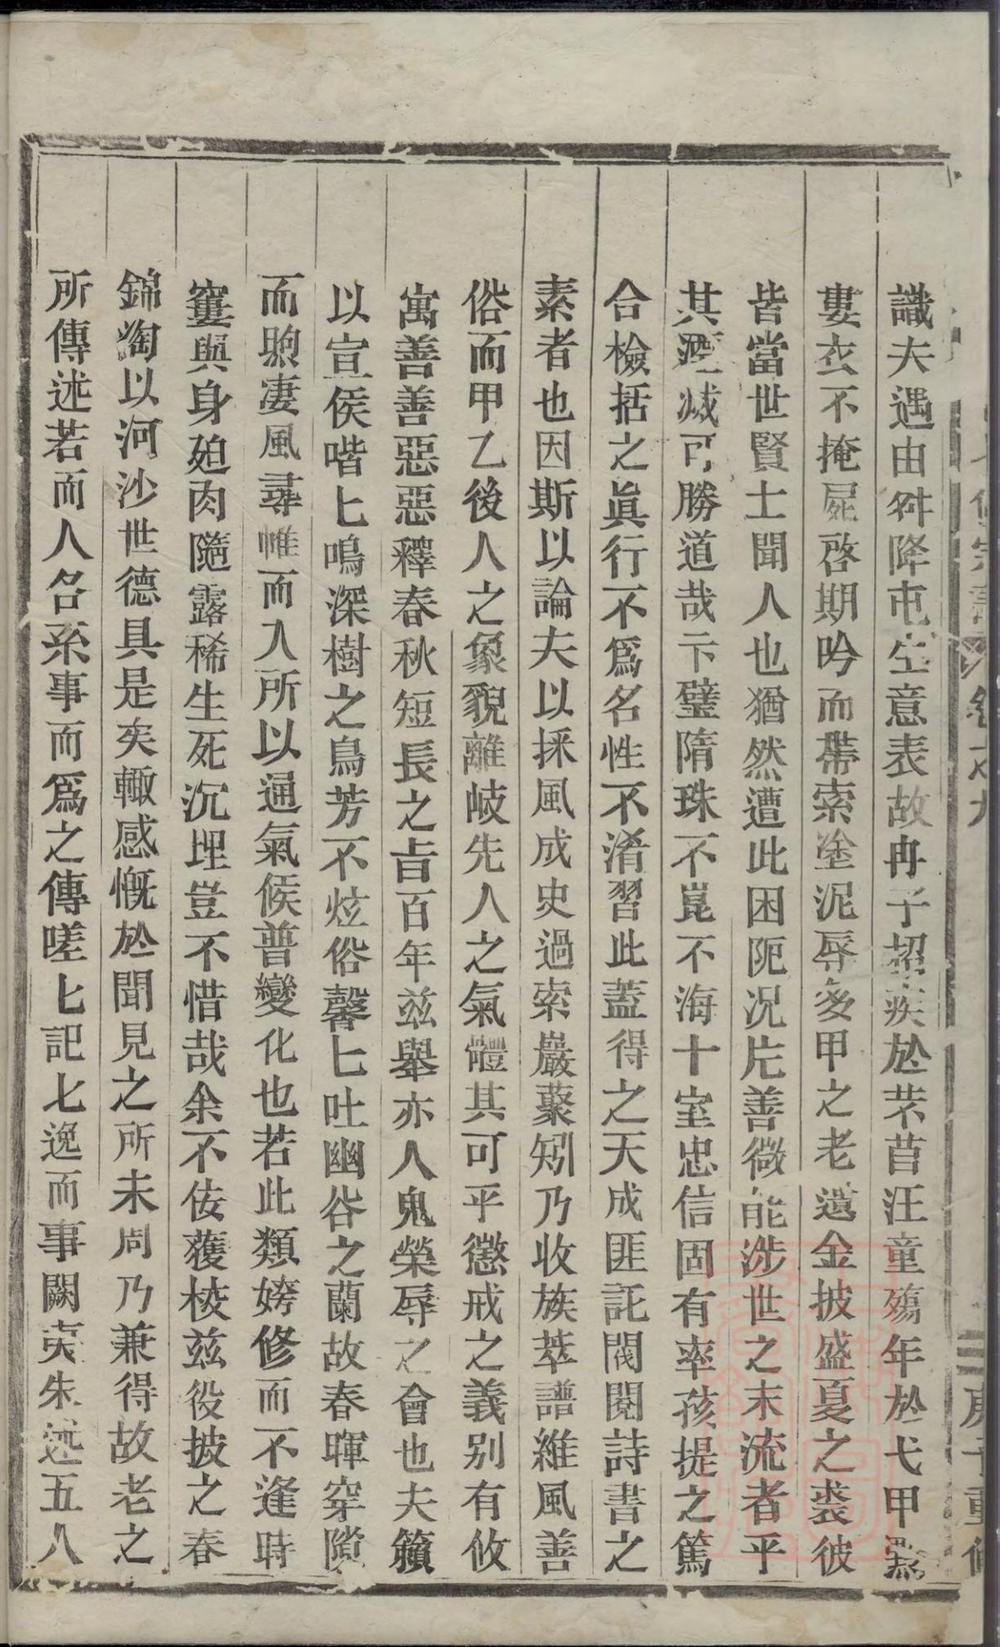 識夫遇由舛降屯生意表故冉子招疾於芣苢汪童殤年於弋甲黔
婁衣不掩屍啓期吟而帶索塗泥辱多甲之老遺金披盛夏之裘彼
皆當世賢士聞人也猶然遭此困阨况片善微能涉世之末流者乎
其湮滅可勝道哉卞璧隋珠不崑不海十室忠信固有率孩提之篤
合檢括之眞行不爲名性不淆習此蓋得之天成匪託閥閱詩書之
素者也因斯以論夫以採風成史過索嚴蔂矧乃收族萃譜維風善
俗而甲乙後人之象貌離岐先人之氣體其可乎懲戒之義别有攸
寓善善惡惡釋春秋短長之㫖百年兹舉亦人鬼榮辱之會也夫籟
以宣侯喈匕鳴深樹之鳥芳不炫俗馨匕吐幽谷之蘭故春暉穿隙
而煦凄風尋帷而入所以通氣候普變化也若此類姱修而不逢時
窶與身廹肉隨露稀生死沉埋豈不惜哉余不佞獲棱兹役披之春
錦淘以河沙世德具是矣輙感慨於聞見之所未周乃兼得故老之
所傳述若而人名系事而爲之傳嗟匕記匕逸而事闕英朱述五八
庚子重修